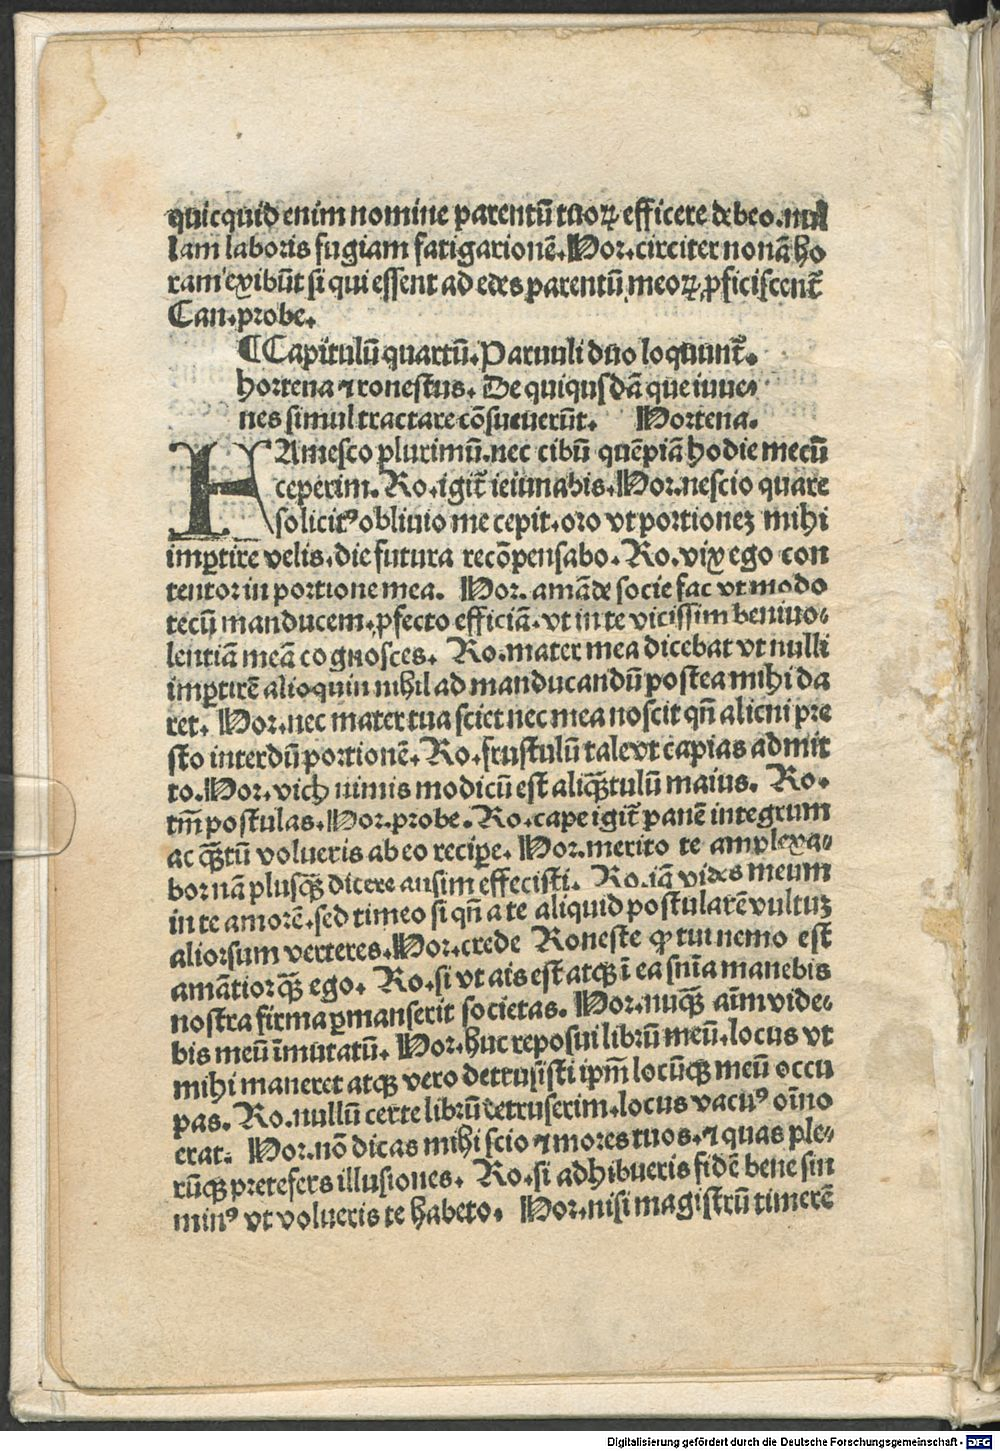 quicquid enim nomine parentū tuoꝝ efficere debeo.nul
lam laboris fugiam fatigationē.Hor.circiter nonā ho
ram exibūt si qui essent ad edes parentū meoꝝ ꝓficiscent᷑
Can.probe.
¶Capitulū quartū.Paruuli duo loquunt᷑.
hortena ⁊ ronestus. De quiqusdā que iuue⸗
nes simul tractare cōsueuerūt. Hortena.
FAmesco plurimū.nec cibū quēpiā hodie mecū
ceperim.Ro.igit᷑ ieiunabis.Hor.nescio quare
solicitꝰ obliuio me cepit.oro vt portionez mihi
imꝑtire velis.die futura recōpensabo.Ro.vix ego con
tentor in portione mea. Hor.amāde socie fac vt modo
tecū manducem.ꝓfecto efficiā.vt in te vicissim beniuo⸗
lentiā meā cognosces. Ro.mater mea dicebat vt nulli
imꝑtirē alioquin nihil ad manducandū postea mihi da
ret. Hor.nec mater tua sciet nec mea noscit qñ alicui pre
sto interdū portionē.Ro.frustulū tale vt capias admit
to.Hor.vich nimis modicū est aliqꝫtulū maius. Ro.
tm̄ postulas.Hor.probe.Ro.cape igit᷑ panē integrum
ac qꝫtū volueris ab eo recipe. Hor.merito te amplexa⸗
bor nā plusqꝫ dicere ausim effecisti. Ro.iā vides meum
in te amorē.sed timeo si qñ a te aliquid postularē vultuz
aliorsum verteres.Hor.crede Roneste ꝙ tui nemo est
amātior qꝫ ego. Ro.si vt ais est atqꝫ ī ea snīa manebis
nostra firma ꝑmanserit societas. Hor.nuqꝫ aīm vide⸗
bis meū īmutatū. Hor.huc reposui librū meū.locus vt
mihi maneret atqꝫ vero detrusisti ipm̄ locūqꝫ meū occu
pas. Ro.nullū certe librū detruserim.locus vacuꝰ oīno
erat. Hor.nō dicas mihi scio ⁊ mores tuos.⁊ quas ple⸗
rūqꝫ pretefers illusiones. Ro.si adhibueris fidē bene sin
minꝰ vt volueris te habeto. Hor.nisi magistrū timerē
Digitalisierung gefördert durch die Deutsche Forschungsgemeinschaft - DFG